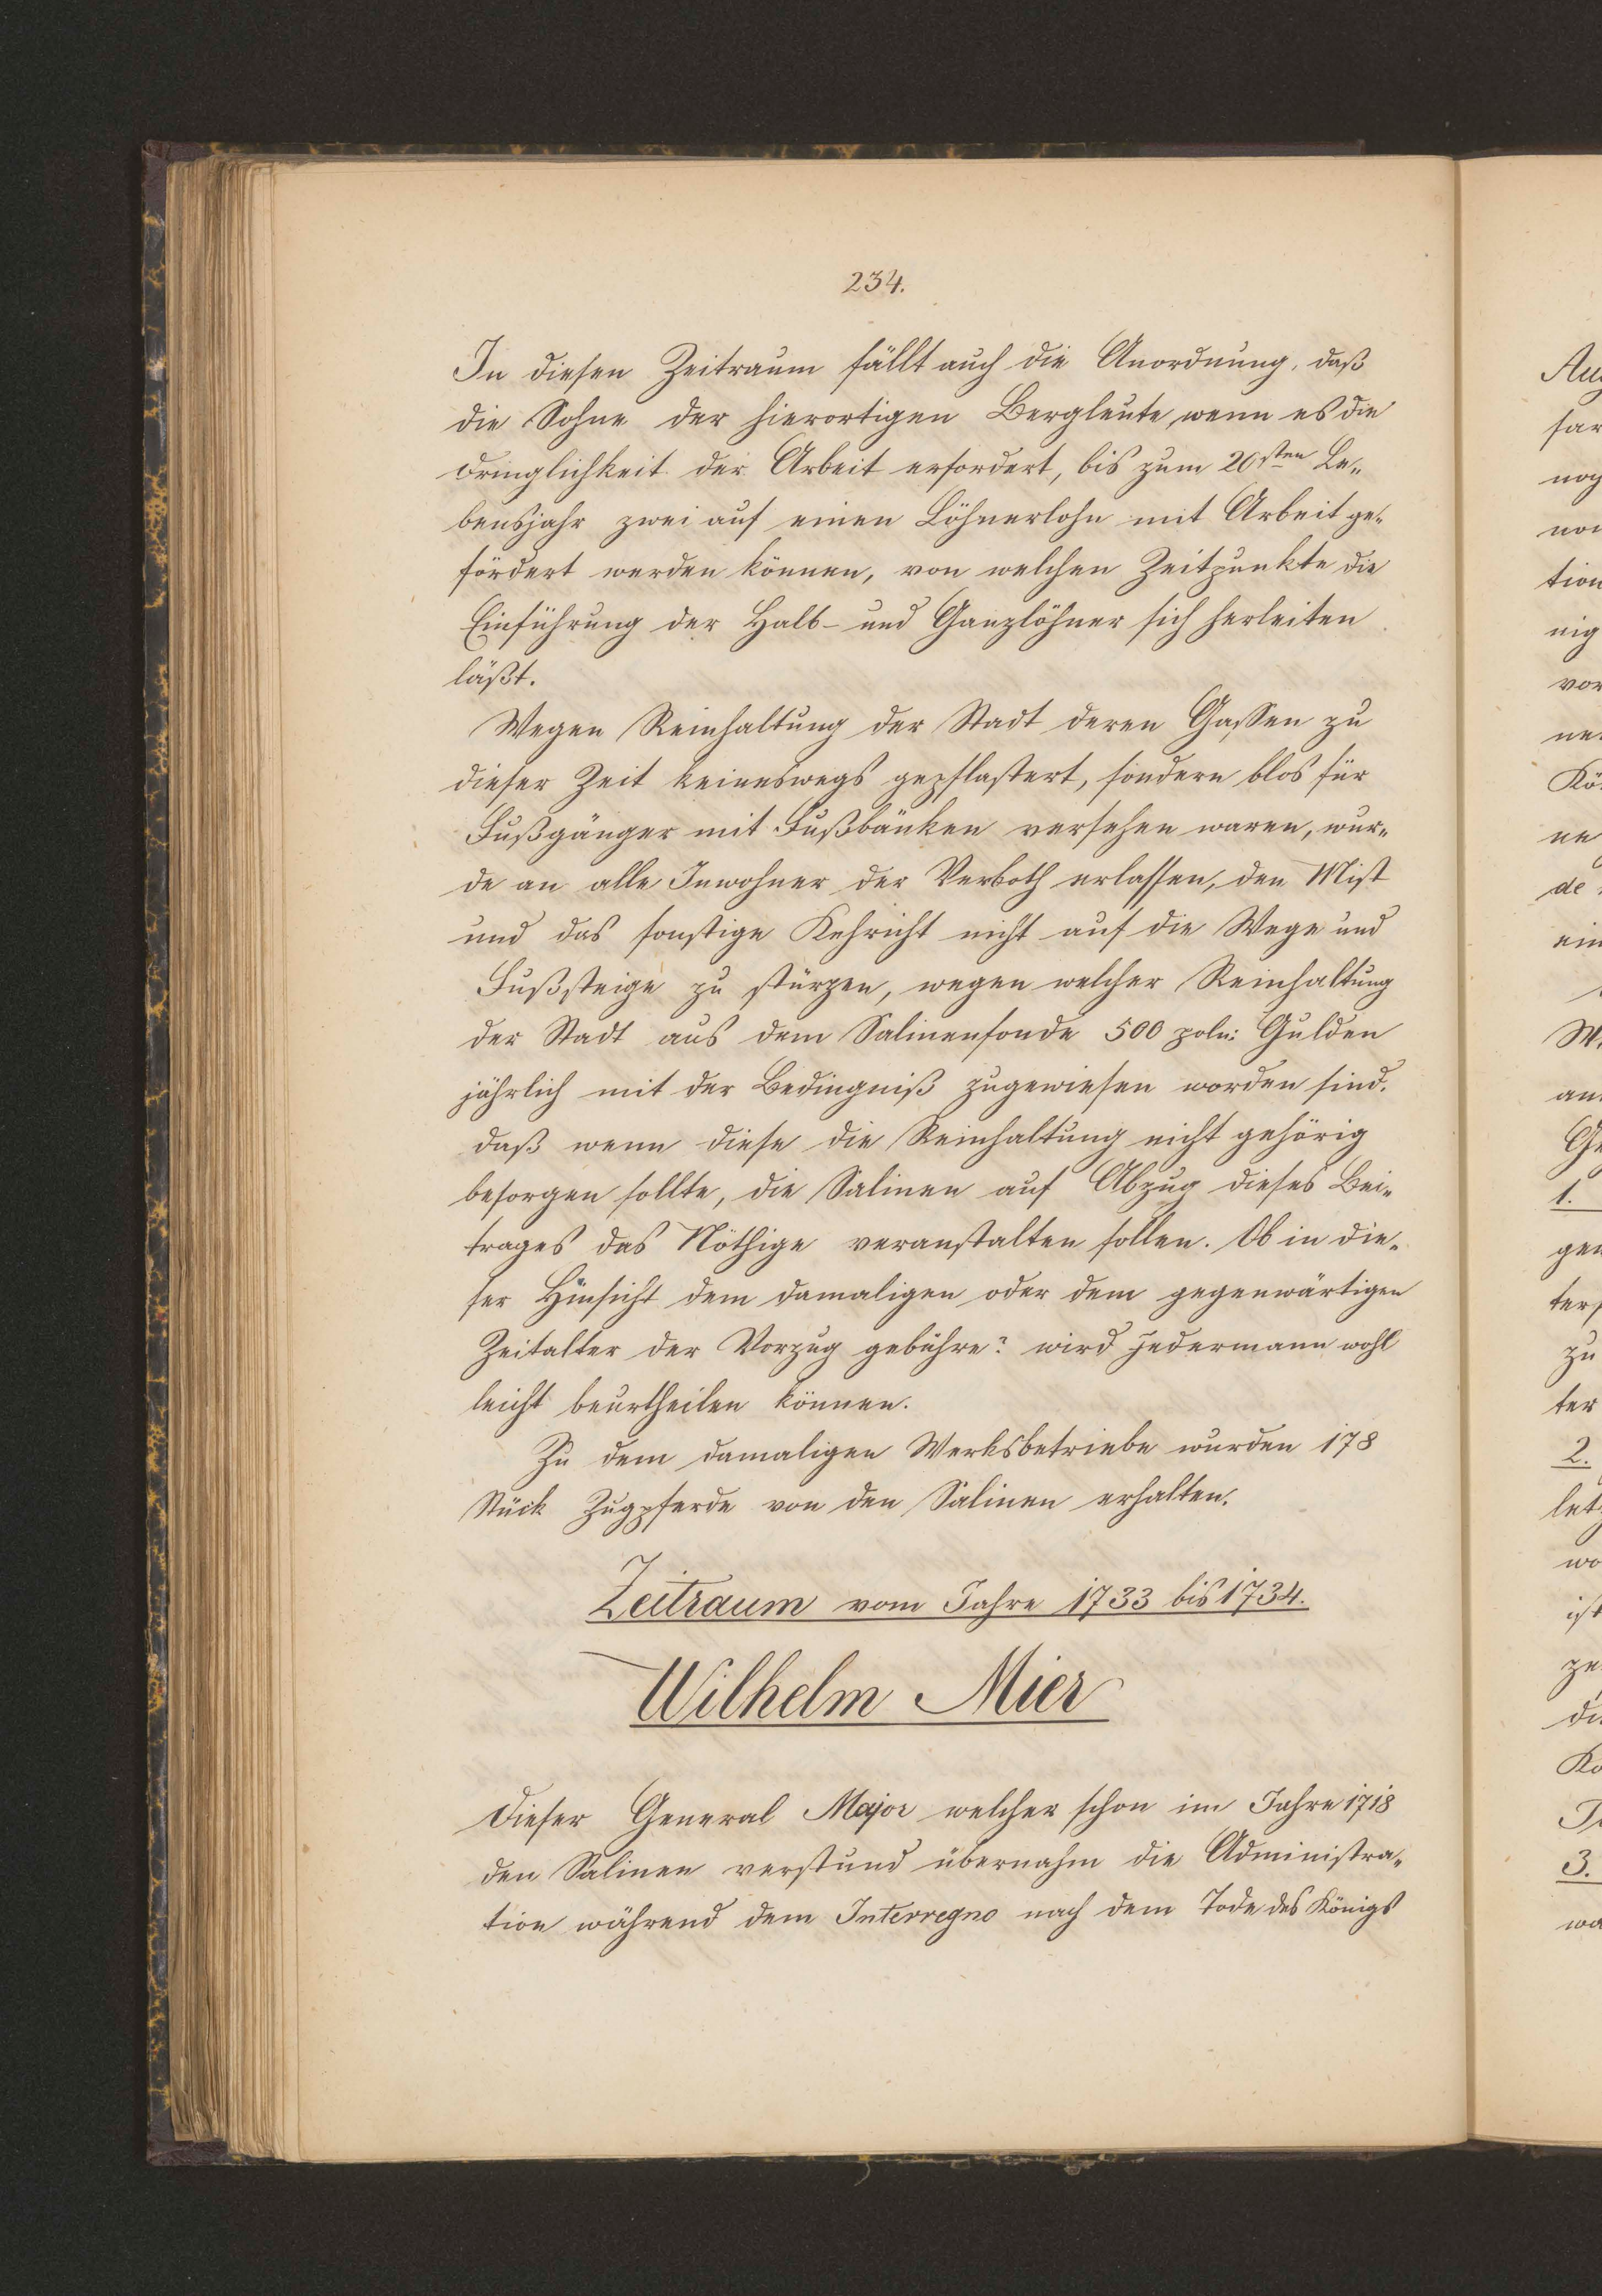 234.
In diesen Zeitraum fällt auch die Anordnung, daß
die Sohne der hierortigen Bergleute, wenn es die
Dringlichkeit der Arbeit erfordert, bis zum 20sten Le„
bensjahr zwei auf einen Löhnerlohn mit Arbeit ge„
fördert werden können, von welchen Zeitpunkte die
Einführung der Halb- und Ganzlöhner sich herleiten
läßt.
Wegen Reinhaltung der Stadt deren Gassen zu
dieser Zeit keineswegs gepflastert, sondern blos für
Fußgänger mit Fußbänken versehen waren, wur„
de an alle Inwohner der Verboth erlassen, den Mist
und das sonstige Kehricht nicht auf die Wege und
Fußsteige zu stürzen, wegen welcher Reinhaltung
der Stadt aus dem Salinenfonde 500 poln: Gulden
jährlich mit der Bedingniß zugewiesen worden sind.
daß wenn diese die Reinhaltung nicht gehörig
besorgen sollte, die Salinen auf Abzug dieses Bei„
trages das Nöthige veranstalten sollen. Ob in die„
ser Hinsicht dem damaligen oder dem gegenwärtigen
Zeitalter der Vorzug gebühre? wird jedermann wohl
leicht beurtheilen können.
Zu dem damaligen Werksbetriebe wurden 178
Stück Zugpferde von den Salinen erhalten.
Zeitraum vom Jahre 1733 bis 1734.
Wilhelm Mier
Dieser General Major welcher schon im Jahre 1718
den Salinen verstund übernahm die Administra„
tion während dem Interregno nach dem Tode des Königs